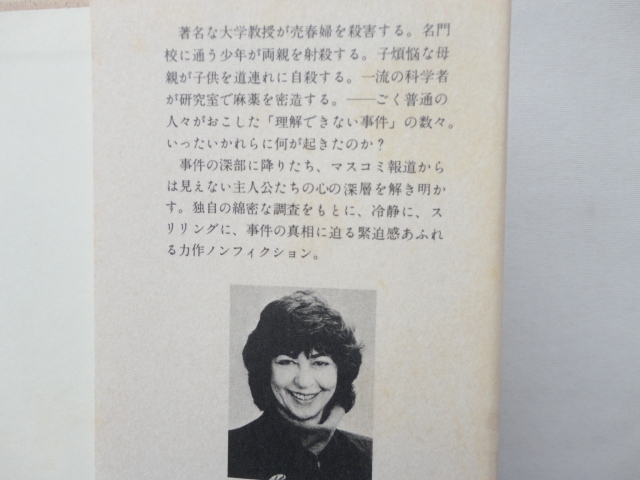 著名な大学教授が売春婦を殺害する。名門
校に通う少年が両親を射殺する。子煩悩な母
親が子供を道連れに自殺する。一流の科学者
が研究室で麻薬を密造する。――ごく普通の
人々がおこした「理解できない事件」の数々。
いったいかれらに何が起きたのか？
事件の深部に降りたち、マスコミ報道から
は見えない主人公たちの心の深層を解き明か
す。独自の綿密な調査をもとに、冷静に、ス
リリングに、事件の真相に迫る緊迫感あふれ
る力作ノンフィクション。